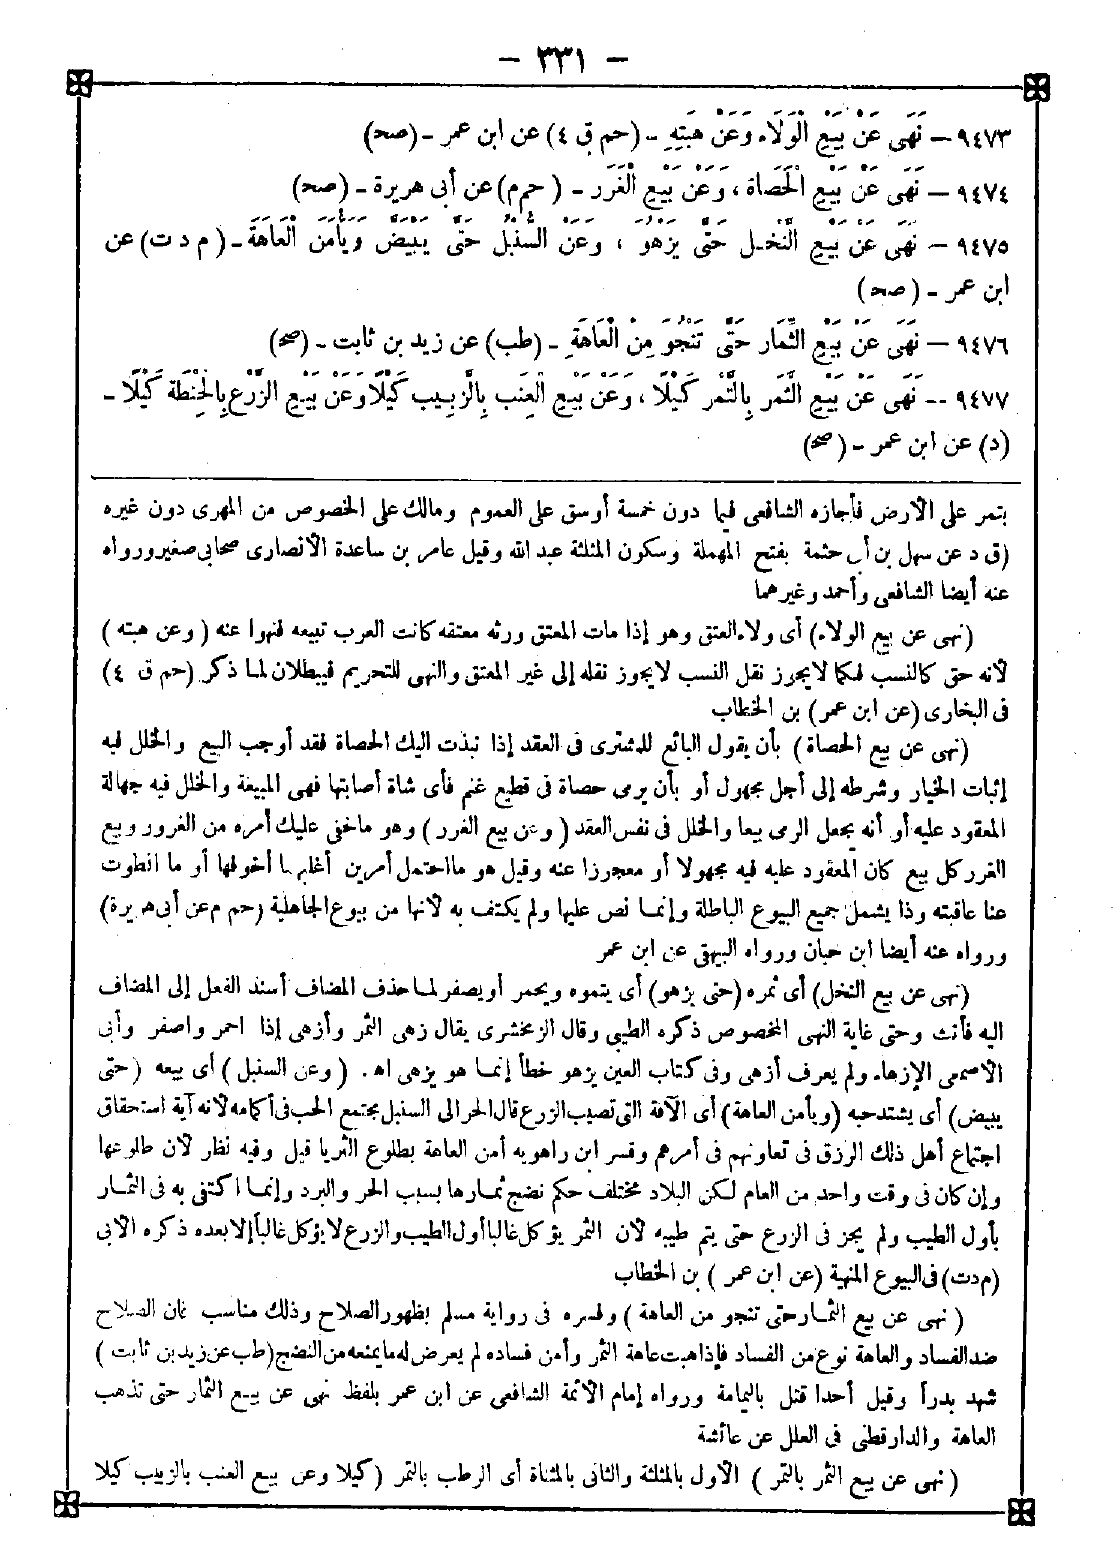 - ٣٣١ -
٩٤٧٣ - نَهَى عَنْ بَيْعِ الْوَلَاءِ وَعَنْ هِبَتِهِ - (حم ق ٤) عن ابن عمر - (صح)
٩٤٧٤ - نَهَى عَنْ بَيْعِ الْحَصَاةِ، وَعَنْ بَيْعِ الْغَرَرِ - (حم م) عن أبى هريرة - (صح)
٩٤٧٥ - نَهَى عَنْ بَيْعِ النَّخْلِ حَتَّى يَزْهُوَ، وَعَنْ السُّنْبُلِ حَتَّى يَبْيَضَّ وَيَأْمَنَ الْعَاهَةَ - (م د ت) عن
ابن عمر - (صح)
٩٤٧٦ - نَهَى عَنْ بَيْعِ الثِّمَارِ حَتَّى تَنْجُوَ مِنْ الْعَاهَةِ - (طب) عن زيد بن ثابت - (صح)
٩٤٧٧ -- نَهَى عَنْ بَيْعِ الثَّمَرِ بِالتَّمْرِ كَيْلًا، وَعَنْ بَيْعِ الْعِنَبِ بِالزَّبِيبِ كَيْلًا وَعَنْ بَيْعِ الزَّرْعِ بِالْحِنْطَةِ كَيْلًا -
(د) عن ابن عمر - (صح)
بتمر على الأرض فأجازه الشافعى فيما دون خمسة أوسق على العموم ومالك على الخصوص من المهرى دون غيره
(ق د عن سهل بن أبى حثمة بفتح المهملة وسكون المثلثة عبد الله وقيل عامر بن ساعدة الأنصارى صحابى صغير ورواه
عنه أيضا الشافعى وأحمد وغيرهما
(نهى عن بيع الولاء) أى ولاء العتق وهو إذا مات المعتق ورثه معتقه كانت العرب تبيعه فنهوا عنه (وعن هبته)
لأنه حق كالنسب فكما لا يجوز نقل النسب لا يجوز نقله إلى غير المعتق والنهى للتحريم فيبطلان لما ذكر (حم ق ٤)
فى البخارى (عن ابن عمر) بن الخطاب
(نهى عن بيع الحصاة) بأن يقول البائع للمشترى فى العقد إذا نبذت اليك الحصاة فقد أوجب البيع والخلل فيه
إثبات الخيار وشرطه إلى أجل مجهول أو بأن يرمى حصاة فى قطيع غنم فأى شاة أصابتها فهى المبيعة والخلل فيه جهالة
المعقود عليه أو أنه يجعل الرمى بيعا والخلل فى نفس العقد (وعن بيع الغرر) وهو ما خفى عليك أمره من الغرور وبيع
الغرر كل بيع كان المعقود عليه فيه مجهولا أو معجوزا عنه وقيل هو ما احتمل أمرين أغلبهما أخوفها أو ما انطوت
عنا عاقبته وذا يشمل جميع البيوع الباطلة وإنما نص عليها ولم يكتف به لأنها من بيوع الجاهلية (حم م عن أبى هريرة)
ورواه عنه أيضا ابن حبان ورواه البيهقى عن ابن عمر
(نهى عن بيع النخل) أى ثمره (حتى يزهو) أى يتموه ويحمر أو يصفر لما حذف المضاف أسند الفعل إلى المضاف
اليه فأنث وحتى غاية النهى المخصوص ذكره الطيبى وقال الزمخشرى يقال زهى الثمر وأزهى إذا احمر واصفر وأبى
الأصمعى الإزهاء ولم يعرف أزهى وفى كتاب العين يزهو خطأ إنما هو يزهى اه. (وعن السنبل) أى بيعه (حتى
يبيض) أى يشتد حبه (ويأمن العاهة) أى الآفة التى تصيب الزرع قال الحرالى السنبل مجتمع الحب فى أكمامه لأنه آية استحقاق
اجتماع أهل ذلك الرزق فى تعاونهم فى أمرهم وفسر ابن راهويه أمن العاهة بطلوع الثريا قيل وفيه نظر لأن طلوعها
وإن كان فى وقت واحد من العام لكن البلاد مختلف حكم نضج ثمارها بسبب الحر والبرد وإنما اكتفى به فى الثمار
بأول الطيب ولم يجز فى الزرع حتى يتم طيبه لأن الثمر يؤكل غالبا أول الطيب والزرع لا يؤكل غالبا إلا بعده ذكره الأبى
(م د ت) فى البيوع المنهية (عن ابن عمر) بن الخطاب
(نهى عن بيع الثمار حتى تنجو من العاهة) وفسره فى رواية مسلم بظهور الصلاح وذلك مناسب فإن الصلاح
ضد الفساد والعاهة نوع من الفساد فإذا ذهبت عاهة الثمر وأمن فساده لم يعرض له ما يمنعه من النضج (طب عن زيد بن ثابت)
شهد بدرا وقيل أحدا قتل باليمامة ورواه إمام الأئمة الشافعى عن ابن عمر بلفظ نهى عن بيع الثمار حتى تذهب
العاهة والدارقطنى فى العلل عن عائشة
(نهى عن بيع الثمر بالتمر) الأول بالمثلثة والثانى بالمثناة أى الرطب بالتمر (كيلا وعن بيع العنب بالزبيب كيلا